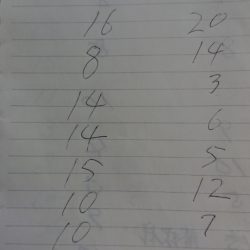 16 20
8 14
14 3
14 6
15 5
10 12
10 7